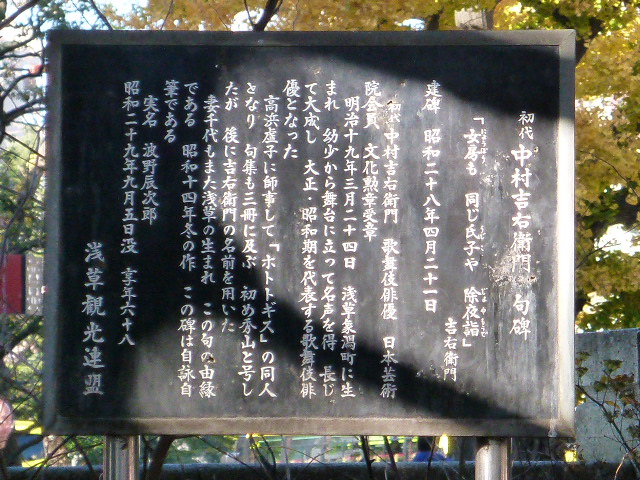 初代 中村吉右衛門 句碑
「女房も 同じ氏子や 除夜詣」
吉右衛門
建碑 昭和二十八年四月二十一日
初代 中村吉右衛門 歌舞伎俳優 日本芸術
院会員 文化勲章受章
明治十九年三月二十四日 浅草象潟町に生
まれ 幼少から舞台に立って名声を得 長じ
て大成し 大正・昭和期を代表する歌舞伎俳
優となった
高浜虚子に師事して「ホトトギス」の同人
となり 句集も三冊に及ぶ 初め秀山と号し
たが 後に吉右衛門の名前を用いた
妻千代もまた浅草の生まれ この句の由縁
である 昭和十四年冬の作 この碑は自詠自
筆である
実名 波野辰次郎
昭和二十九年九月五日没 享年六十八
浅草観光連盟